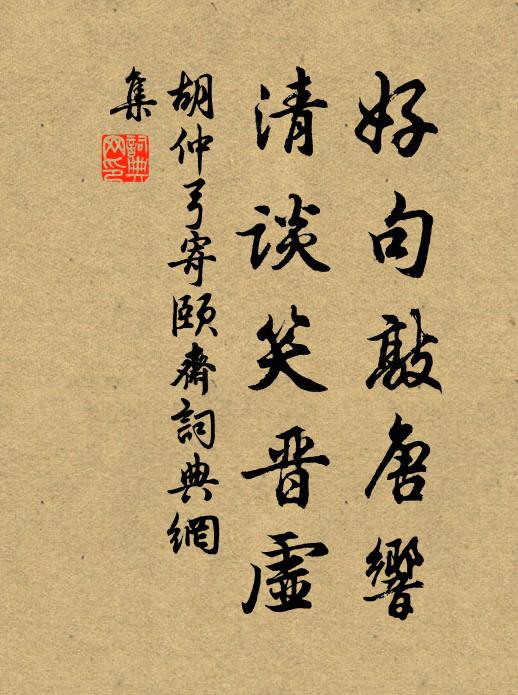 好句敲唐響
清談笑晋虛
胡仲弓寄頤齋詞典網
集
詞典
网印